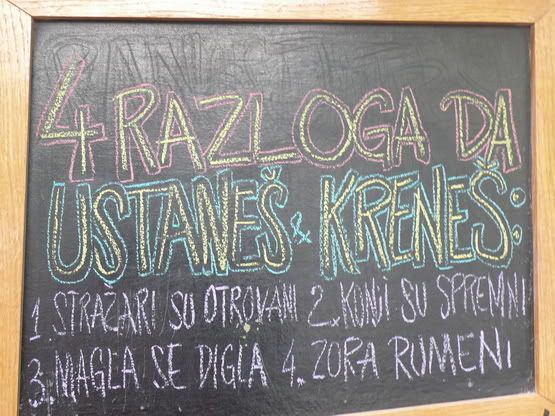 4 RAZLOGA DA
USTANEŠ & KRENEŠ:
1. STRAŽARI SU OTROVANI 2. KONJI SU SPREMNI
3. MAGLA SE DIGLA 4. ZORA RUMENI